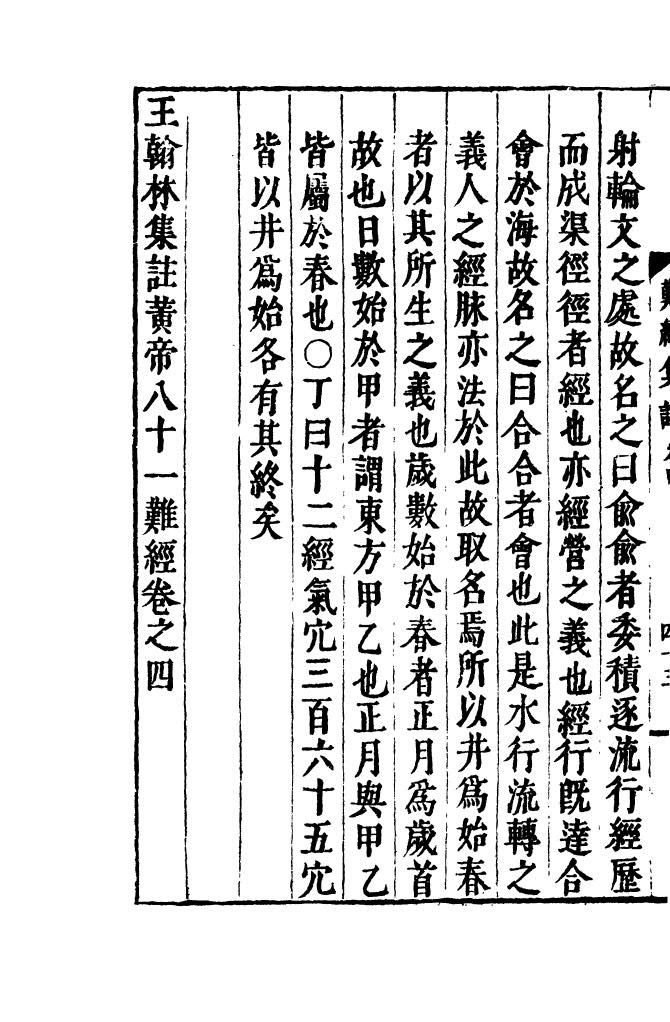 射輪文之處故名之曰俞俞者委積逐流行經歷
而成渠徑徑者經也亦經營之義也經行既達合
會於海故名之曰合合者會也此是水行流轉之
義人之經脉亦法於此故取名焉所以井爲始春
者以其所生之義也歲數始於春者正月爲歲首
故也日數始於甲者謂東方甲乙也正月與甲乙
皆屬於春也○丁曰十二經氣穴三百六十五穴
皆以井爲始各有其終矣
王翰林集註黃帝八十一難經卷之四